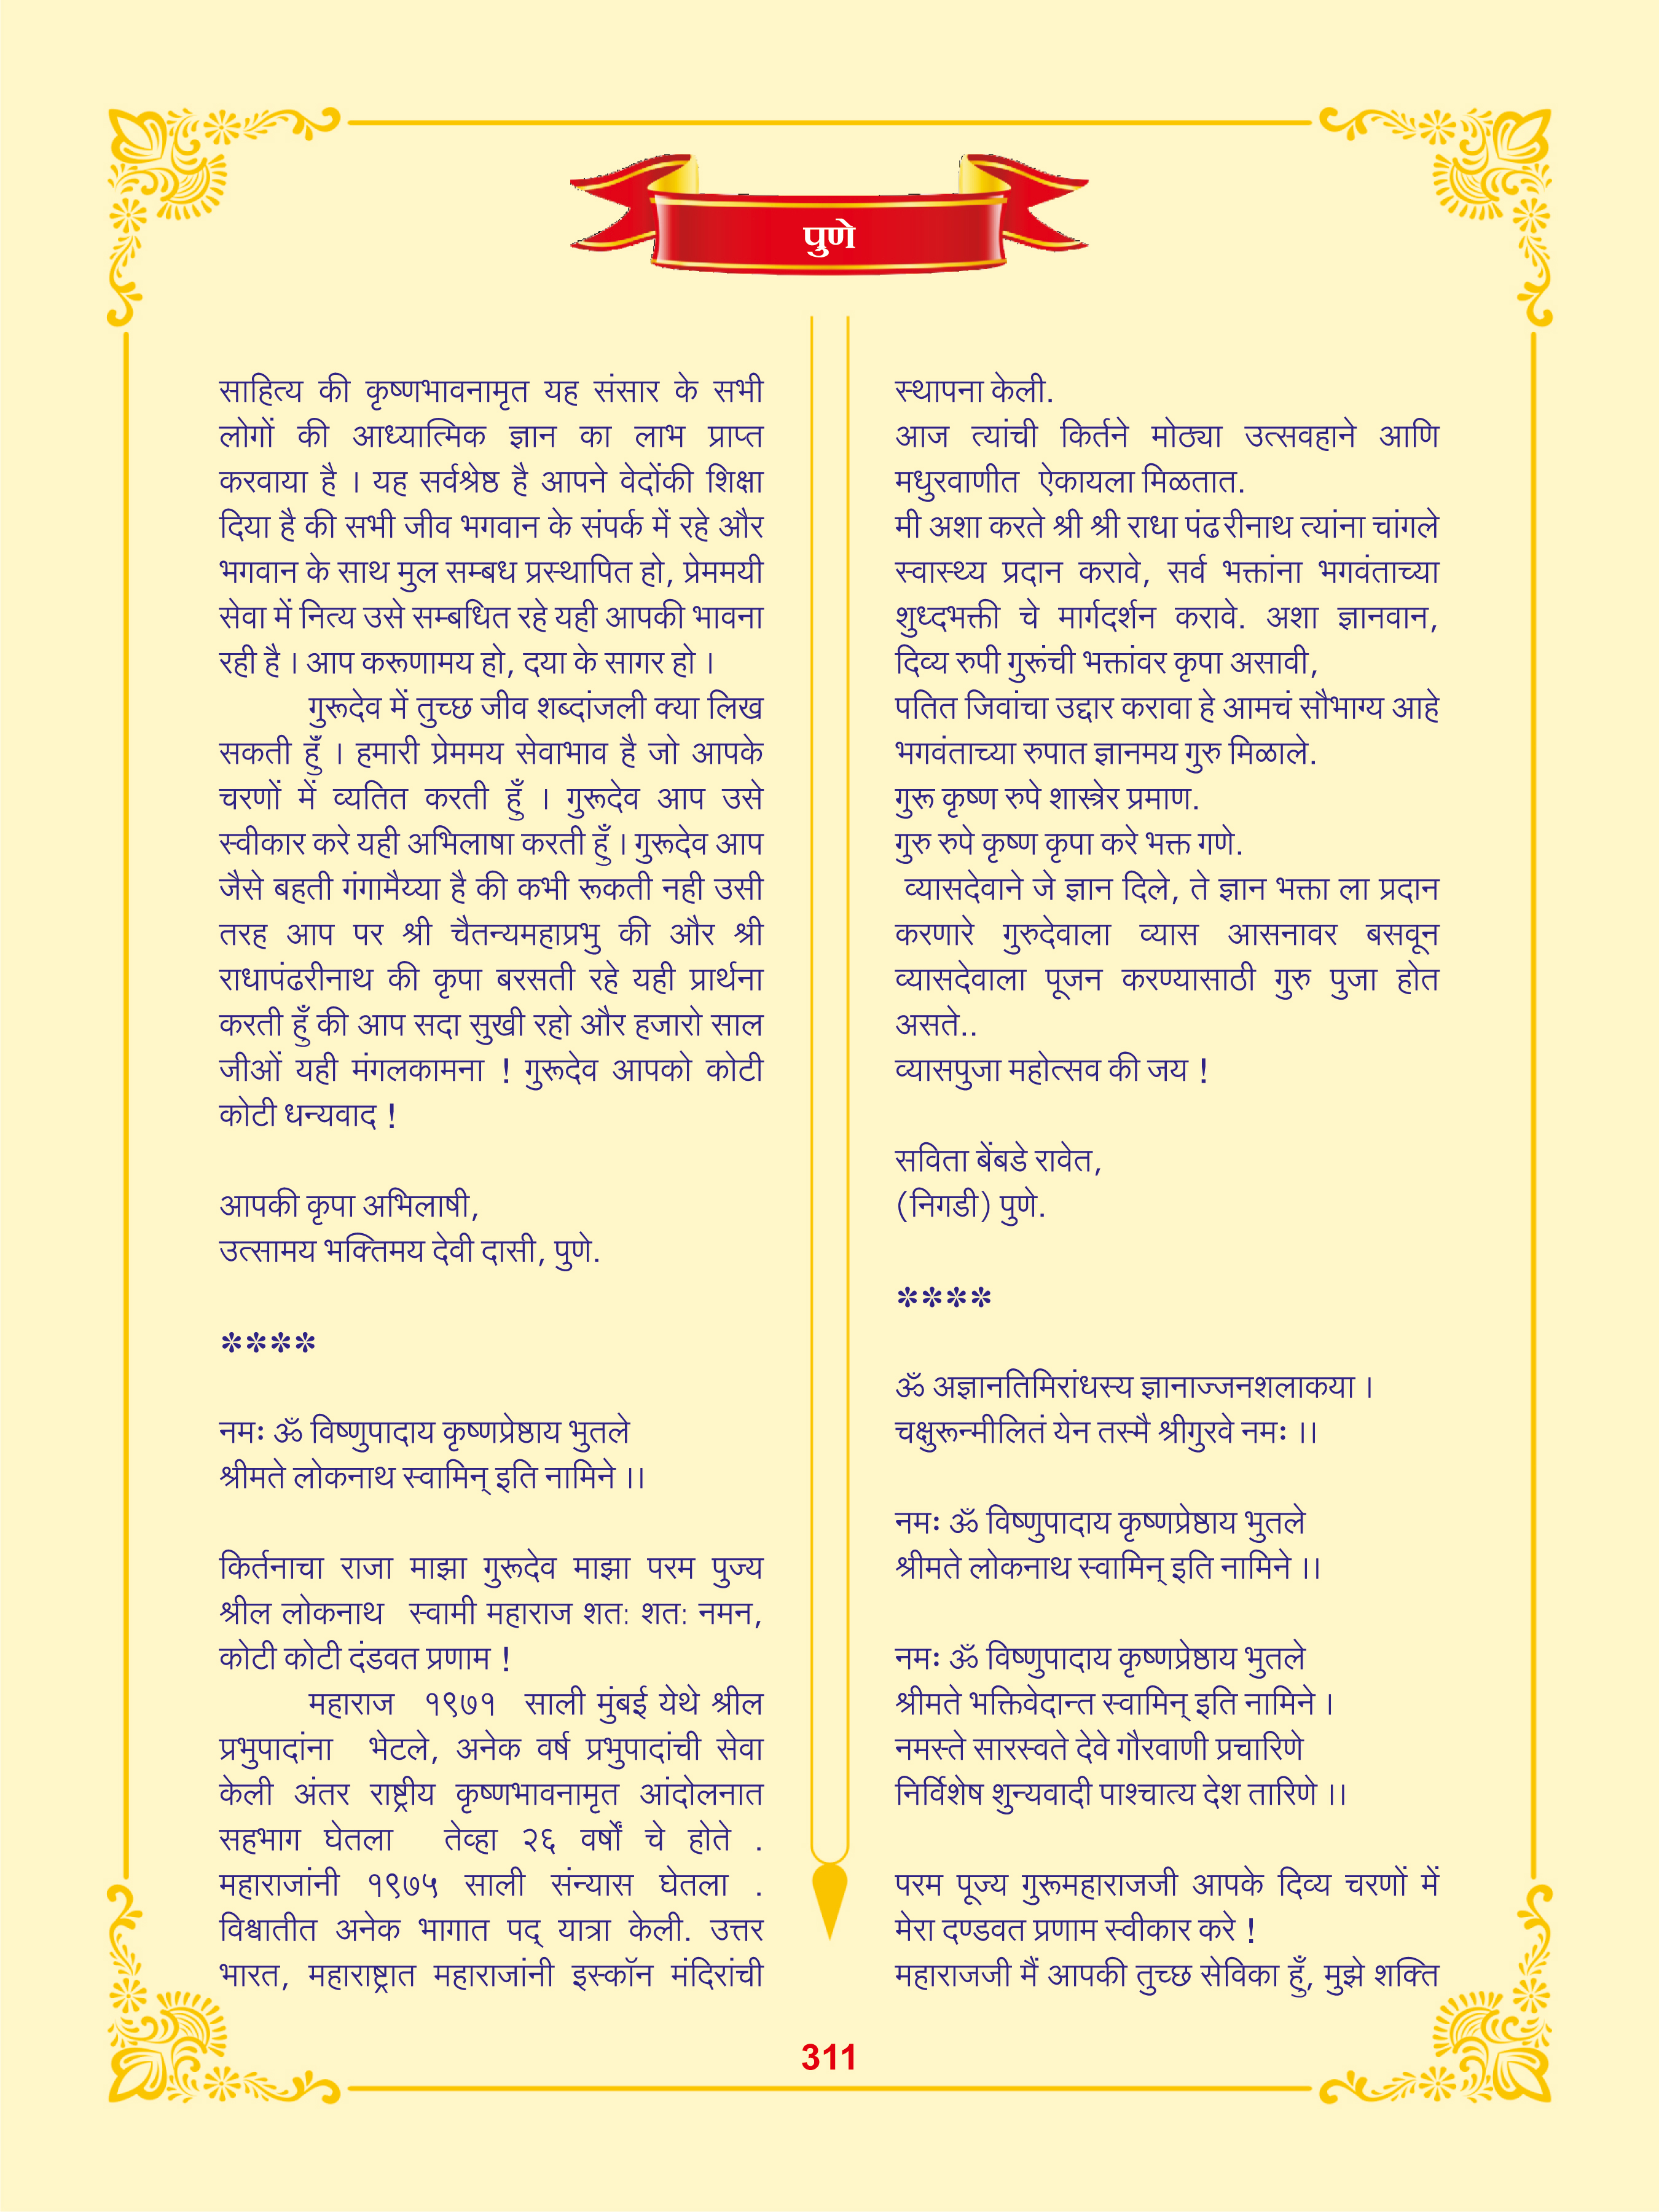 पुणे
साहित्य की कृष्णभावनामृत यह संसार के सभी
लोगों की आध्यात्मिक ज्ञान का लाभ प्राप्त
करवाया है । यह सर्वश्रेष्ठ है आपने वेदोंकी शिक्षा
दिया है की सभी जीव भगवान के संपर्क में रहे और
भगवान के साथ मुल सम्बध प्रस्थापित हो, प्रेममयी
सेवा में नित्य उसे सम्बधित रहे यही आपकी भावना
रही है । आप करूणामय हो, दया के सागर हो ।
गुरूदेव में तुच्छ जीव शब्दांजली क्या लिख
सकती हुँ । हमारी प्रेममय सेवाभाव है जो आपके
चरणों में व्यतित करती हुँ । गुरूदेव आप उसे
स्वीकार करे यही अभिलाषा करती हुँ । गुरूदेव आप
जैसे बहती गंगामैय्या है की कभी रूकती नही उसी
तरह आप पर श्री चैतन्यमहाप्रभु की और श्री
राधापंढरीनाथ की कृपा बरसती रहे यही प्रार्थना
करती हुँ की आप सदा सुखी रहो और हजारो साल
जीओं यही मंगलकामना ! गुरूदेव आपको कोटी
कोटी धन्यवाद !
आपकी कृपा अभिलाषी,
उत्सामय भक्तिमय देवी दासी, पुणे.
****
नमः ॐ विष्णुपादाय कृष्णप्रेष्ठाय भुतले
श्रीमते लोकनाथ स्वामिन् इति नामिने ।।
किर्तनाचा राजा माझा गुरूदेव माझा परम पुज्य
श्रील लोकनाथ स्वामी महाराज शत: शत: नमन,
कोटी कोटी दंडवत प्रणाम !
महाराज १९७१ साली मुंबई येथे श्रील
प्रभुपादांना भेटले, अनेक वर्ष प्रभुपादांची सेवा
केली अंतर राष्ट्रीय कृष्णभावनामृत आंदोलनात
सहभाग घेतला तेव्हा २६ वर्षों चे होते .
महाराजांनी १९७५ साली संन्यास घेतला .
विश्वातीत अनेक भागात पद् यात्रा केली. उत्तर
भारत, महाराष्ट्रात महाराजांनी इस्कॉन मंदिरांची
स्थापना केली.
आज त्यांची किर्तने मोठ्या उत्सवहाने आणि
मधुरवाणीत ऐकायला मिळतात.
मी अशा करते श्री श्री राधा पंढरीनाथ त्यांना चांगले
स्वास्थ्य प्रदान करावे, सर्व भक्तांना भगवंताच्या
शुध्दभक्ती चे मार्गदर्शन करावे. अशा ज्ञानवान,
दिव्य रुपी गुरूंची भक्तांवर कृपा असावी,
पतित जिवांचा उद्दार करावा हे आमचं सौभाग्य आहे
भगवंताच्या रुपात ज्ञानमय गुरु मिळाले.
गुरू कृष्ण रुपे शास्त्रेर प्रमाण.
गुरु रुपे कृष्ण कृपा करे भक्त गणे.
व्यासदेवाने जे ज्ञान दिले, ते ज्ञान भक्ता ला प्रदान
करणारे गुरुदेवाला व्यास आसनावर बसवून
व्यासदेवाला पूजन करण्यासाठी गुरु पुजा होत
असते..
व्यासपुजा महोत्सव की जय !
सविता बेंबडे रावेत,
(निगडी) पुणे.
****
ॐ अज्ञानतिमिरांधस्य ज्ञानाज्जनशलाकया ।
चक्षुरून्मीलितं येन तस्मै श्रीगुरवे नमः ।।
नमः ॐ विष्णुपादाय कृष्णप्रेष्ठाय भुतले
श्रीमते लोकनाथ स्वामिन् इति नामिने ।।
नमः ॐ विष्णुपादाय कृष्णप्रेष्ठाय भुतले
श्रीमते भक्तिवेदान्त स्वामिन् इति नामिने ।
नमस्ते सारस्वते देवे गौरवाणी प्रचारिणे
निर्विशेष शुन्यवादी पाश्चात्य देश तारिणे ।।
परम पूज्य गुरूमहाराजजी आपके दिव्य चरणों में
मेरा दण्डवत प्रणाम स्वीकार करे !
महाराजजी मैं आपकी तुच्छ सेविका हुँ, मुझे शक्ति
311